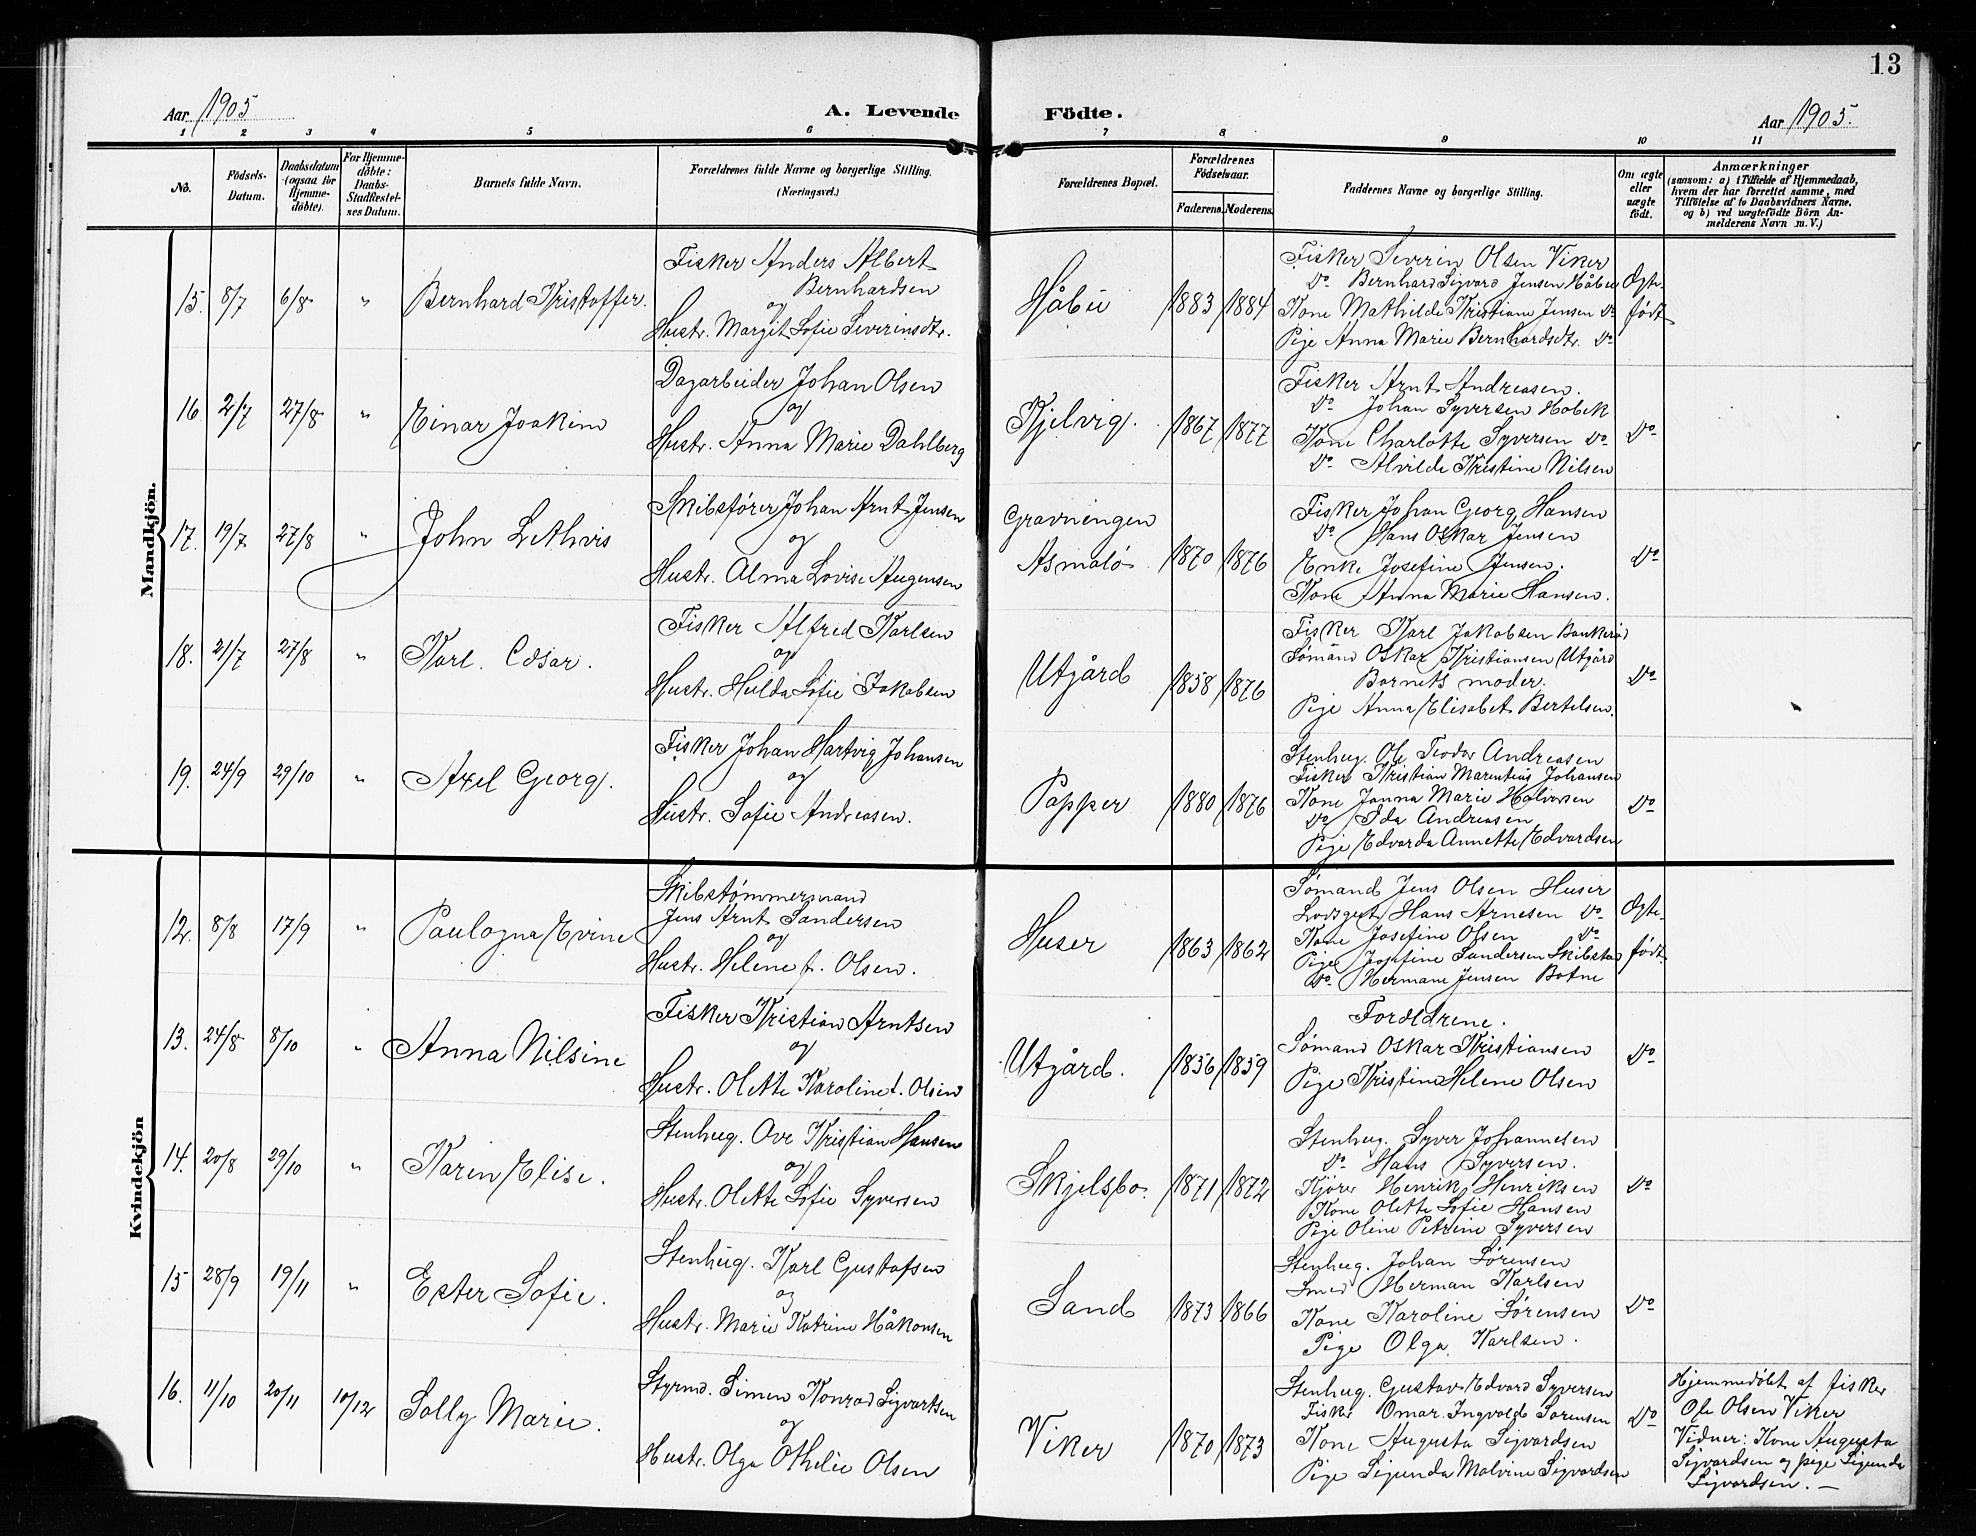 13
Aar 1905
A. Levende
Födte.
Aar 1905.
1 2 3 4 5 6 7 8 9 10 11
No.
Födsels-
Datum.
Daabsdatum
(ogsaa for
Hjemme-
döbte).
For Hjemme-
döbte:
Daabs-
Stadfæstel-
ses Datum.
Barnets fulde Navn.
Forældrenes fulde Navne og borgerlige Stilling.
(Næringsvei.)
Forældrenes Bopæl.
Forældrenes
Födselsaar.
Faderens. Moderens.
Faddernes Navne og borgerlige Stilling.
Om ægte
eller
uægte
födt.
Anmærkninger
(saasom: a) i Tilfælde af Hjemmedaab,
hvem der har forrettet samme, med
Tilföielse af to Daabsvidners Navne,
og b) ved uægtefödte Börn An-
melderens Navn m. V.)
Mandkjön.
15. 8/7 6/8 " Bernhard Kristoffer.
Fisker Anders Albert
Bernhardsen
og
Hustr. Margit Sofie Severinsdtr.
Håbu 1883 1884
Fisker Severin Olsen Viker
Do Bernhard Sigvard Jensen Håbu
Kone Mathilde Kristiane Jensen Do
Pige Anna Marie Bernhardsdtr. Do
Ægte
født
16 2/7 27/8 " Einar Joakim
Dagarbeider Johan Olsen
og
Hustr. Anna Marie Dahlberg
Kjelvig. 1867 1877
Fisker Arnt Andreasen.
Do Johan Syversen Habek
Kone Charlotte Syversen Do
Do Alvilde Kristine Nilsen
Do
17. 19/7 27/8 " John
Skibsfører Johan Arnt Jensen
og
Hustr. Alma Lovise Augensen
Gravningen
Asmalø 1870 1876
Fisker Johan Georg Hansen
Do Hans Oskar Jensen
Enke Josefine Jensen.
Kone Anna Marie Hansen.
Do
18. 21/7 27/8 " Karl Cæsar.
Fisker Alfred Karlsen
og
Hustr. Hulda Sofie Jakobsen
Utgård 1858 1876
Fisker Karl Jakobsen Bankerød
Sømand Oskar Kristiansen Utgård
Barnets moder.
Pige Anna Elisabet Bertelsen.
Do
19. 24/9 29/10 " Axel Georg.
Fisker Johan Hartvig Johansen
og
Hustr. Sofie Andreasen.
Papper 1880 1876
Stenhug. Ole Teodor Andreasen
Fisker Kristian Marentius Johansen
Kone Janna Marie Halvorsen
Do Ida Andreasen
Pige Edvarda Annette Edvardsen
Do
Kvindekjön
12. 8/8 17/9 " Paulogna Evine
Skibstømmermand
Jens Arnt Sandersen
og
Hustr. Helene f. Olsen.
Huser 1863 1862
Sømand Jens Olsen Huser
Lodsgut Hans Arnesen Do
Kone Josefine Olsen Do
Pige Josefine Sandersen Skibstad
Do Hermane Jensen Botne
Ægte
født
13. 24/8 8/10 " Anna Nilsine
Fisker Kristian Arntsen
og
Hustr. Olette Karoline f. Olsen
Utgård. 1856 1859
Forældrene.
Sømand Oskar Kristiansen
Pige Kristine Helene Olsen
Do
14. 20/8 29/10 " Karin Elise.
Stenhug. Ove Kristian Hansen
og
Hustr. Olette Sofie Syversen
Skjelsbo. 1871 1872
Stenhug. Syver Johannesen
Do Hans Syversen.
Kjører Henrik Henriksen
Kone Olette Sofie Hansen
Pige Oline Petrine Syversen
Do
15 28/9 19/11 " Ester Sofie.
Stenhug. Karl Gustafsen
og
Hustr. Marie Katrine Håkonsen
Sand 1873 1866
Stenhug. Johan Sørensen
Smed Herman Karlsen
Kone Karoline Sørensen
Pige Olga Karlsen.
Do
16. 11/10 20/11 10/12 Solly Marie.
Styrmd. Simen Konrad Sigvartsen
og
Hustr. Olga Othelie Olsen
Viker 1870 1873
Stenhug. Gustav Edvard Syversen
Fisker Omar Ingvald Sørensen
Kone Augusta Sigvardsen
Pige Sigunda Malvine Sigvardsen
Do
Hjemmedøbt af fisker
Ole Olsen Viker
Vidner: Kone Augusta
Sigvardsen og pige Sigunda
Sigvardsen. –